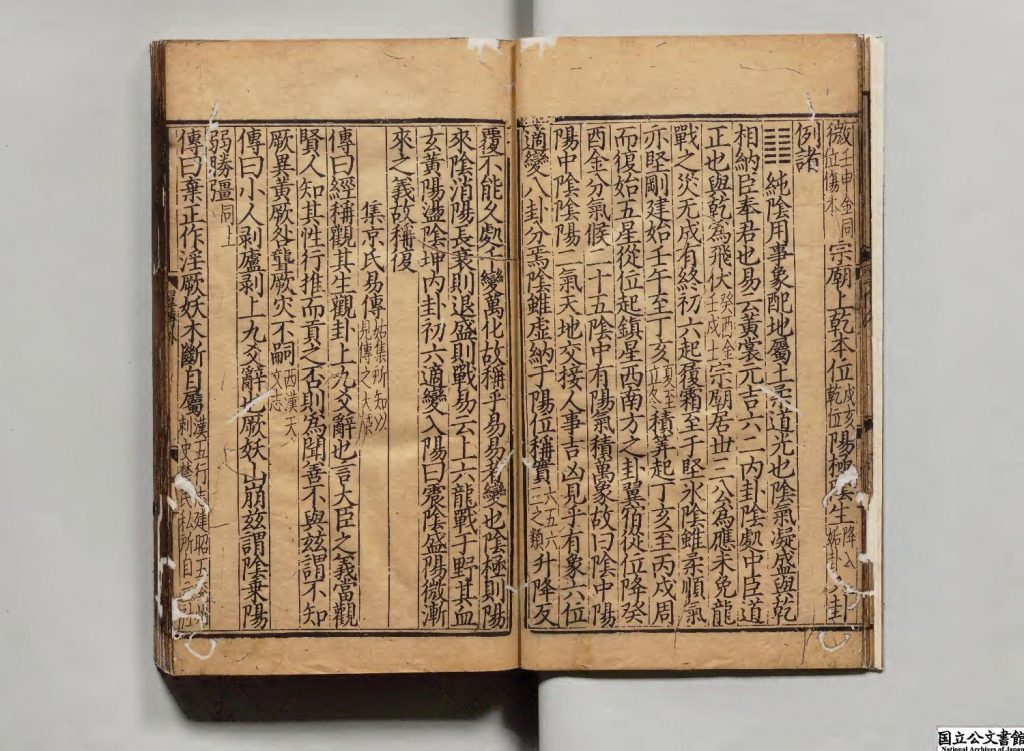 微壬申金同
位傷木宗廟上乾本位戌亥
乾位陽極陰生降入
姤卦八卦
例諸
䷁純陰用事象配地屬土柔道光也陰氣凝盛與乾
相納臣奉君也易云黃裳元吉六二内卦陰處中臣道
正也與乾為飛伏癸酉金
壬戌土宗廟居世三公為應未免龍
戰之災无成有終初六起履霜至于堅氷陰雖柔順氣
亦堅剛建始壬午至丁亥夏至
立冬積筭起丁亥至丙戌周
而復如五星從位起鎮星西南方之卦翼宿從位降癸
酉金分氣候二十五陰中有陽氣積萬象故曰陰中陽
陽中陰陰陽二氣天地交接人事吉凶見乎有象六位
適變八卦分焉陰雖虚納于陽位稱實六五六
三之類升降反
覆不能久處千變萬化故稱乎易易者變也陰極則陽
來陰消陽長衰則退盛則戰易云上六龍戰于野其血
玄黃陽盪陰坤内卦初六適變入陽曰震陰盛陽微漸
來之義故稱復
集京氏易傳
傳曰經稱觀其生觀卦上九爻辭也言大臣之義當觀
賢人知其性行推而貢之否則為聞善不與茲謂不知
厥異黃厥咎聾厥災不嗣西漢天
文志
傳曰小人剥廬剥上九爻辭也厥妖山崩茲謂陰乗陽
弱勝彊同上
傳曰棄正作淫厥妖木斷自屬漢五行志建昭五
刺史禁民私所自立社
国立公文書館
National Archives of Japan